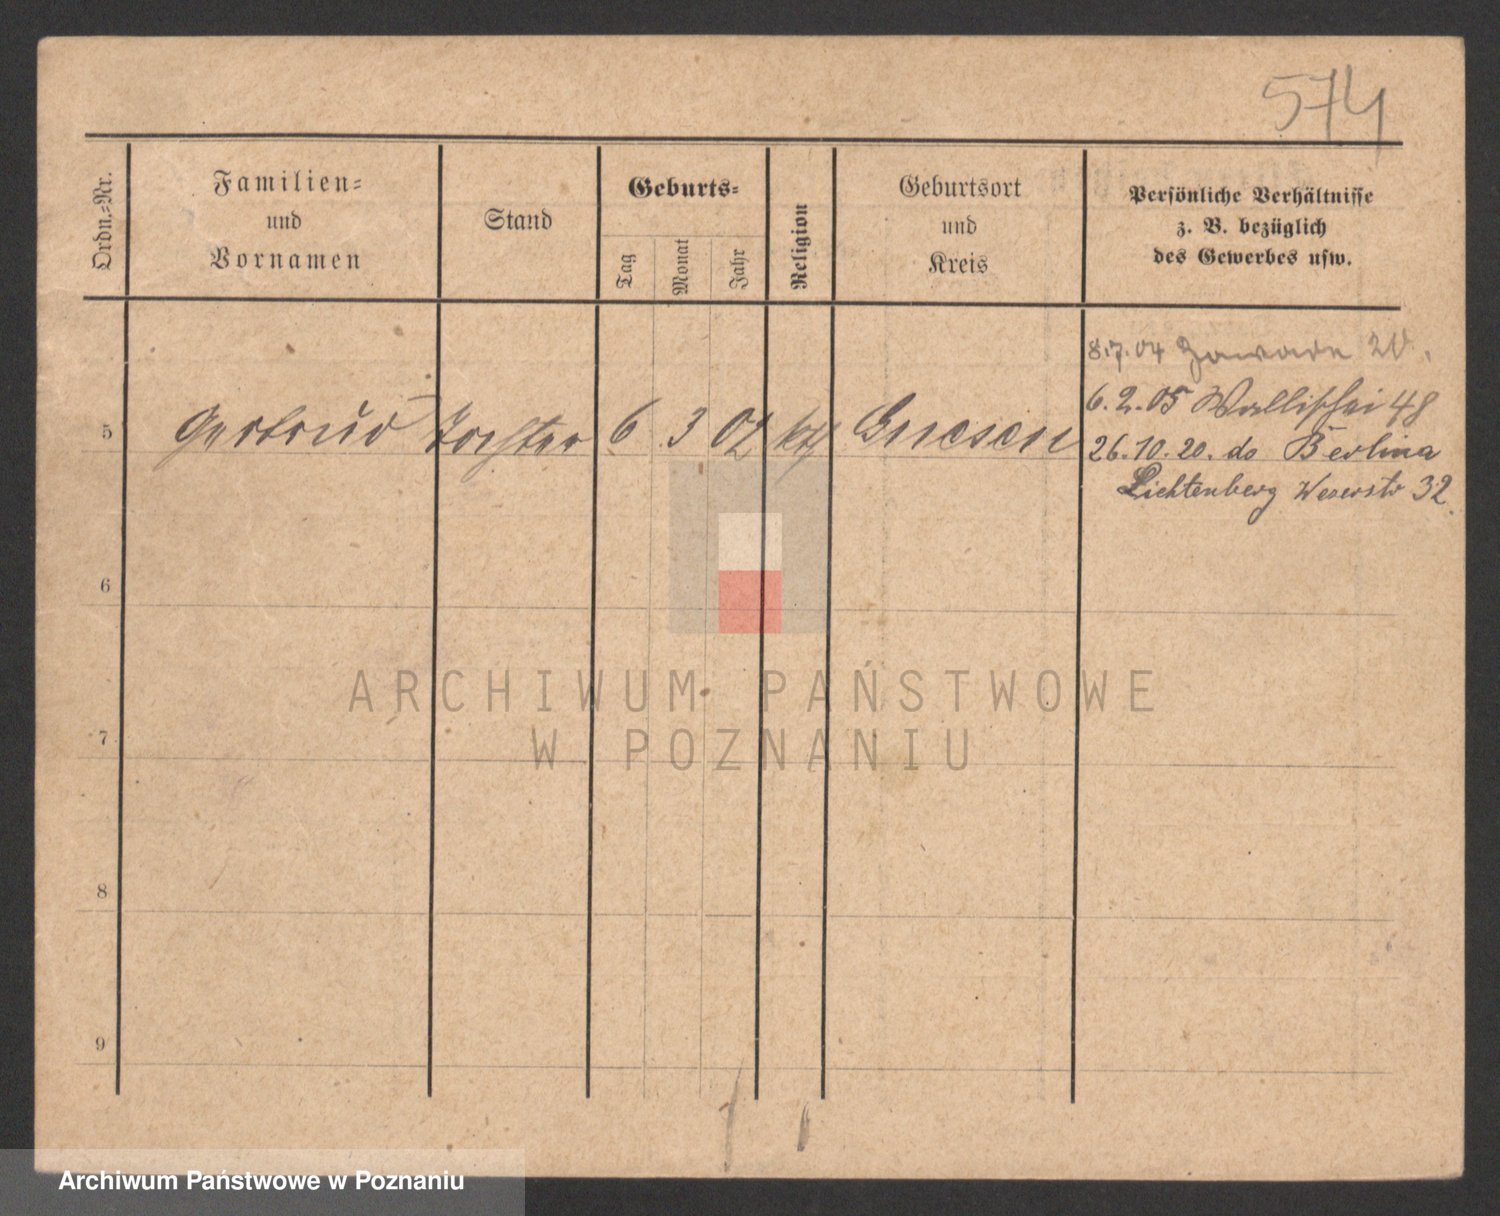 574
Ordn.=Nr.
Familien=
und
Vornamen
Stand
Geburts=
Tag
Monat
Jahr
Religion
Geburtsort
und
Kreis
Persönliche Verhältnisse
z. B. bezüglich
des Gewerbes usw.
8.7.04 Zawade 20.
6.2.05 Wallischei 48
5 Gertrud Tochter 6 3 02 kth Gnesen
26.10.20. do Berlina
Lichtenberg Weserstr 32.
6
7
8
9
ARCHIWUM PAŃSTWOWE
W POZNANIU
Archiwum Państwowe w Poznaniu